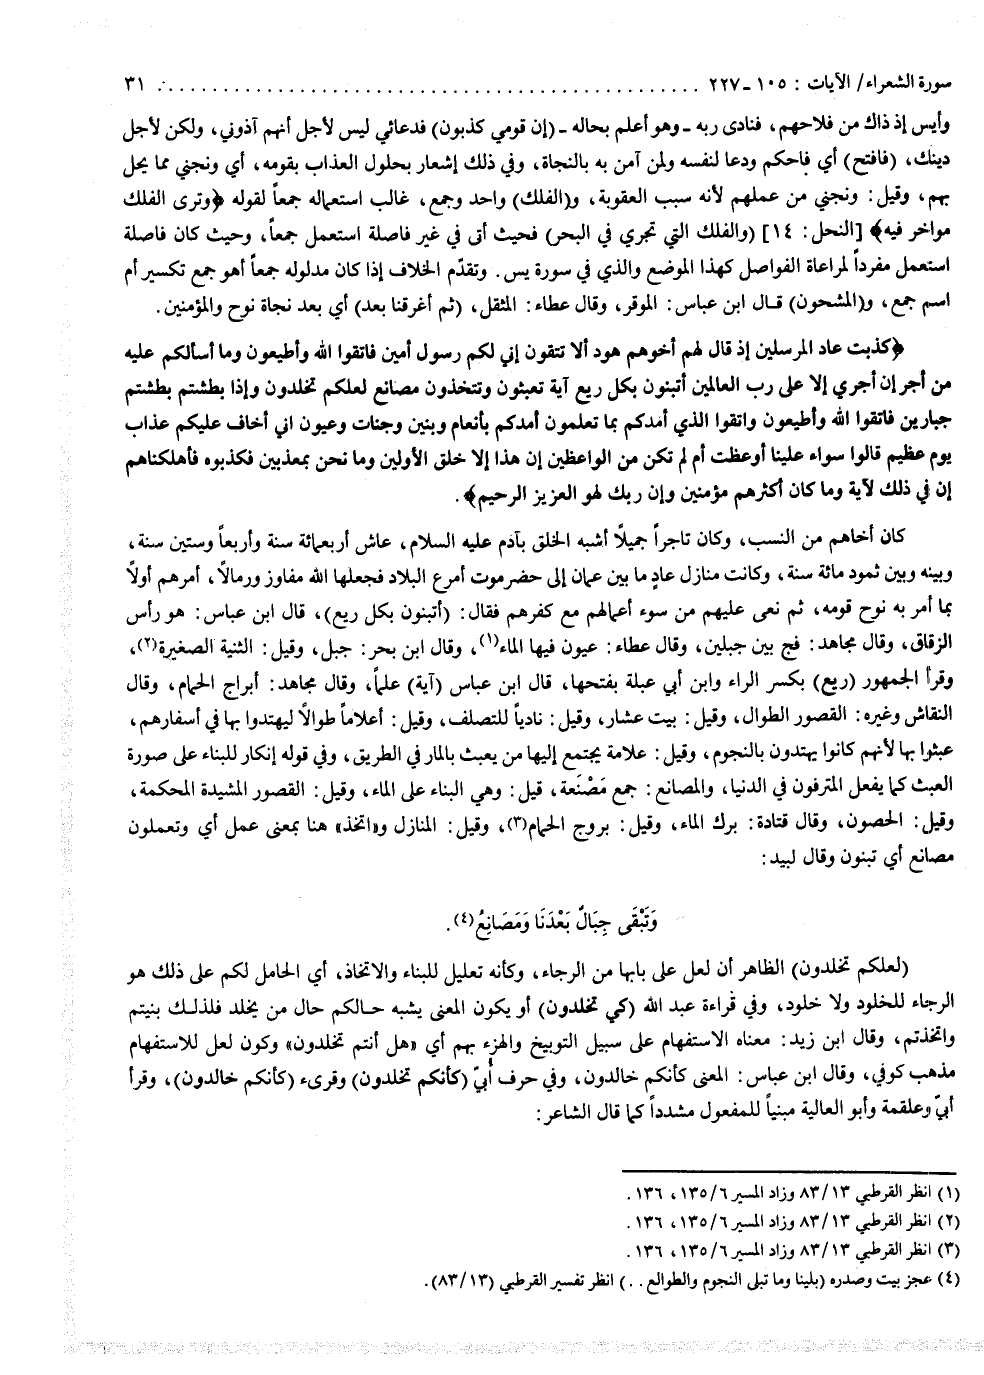 سورة الشعراء/ الآيات : ١٠٥ ـ ٢٢٧ ........................................ ٣١
وأيس إذ ذاك من فلاحهم، فنادى ربه ـ وهو أعلم بحاله ـ (إن قومي كذبون) فدعائي ليس لأجل أنهم آذوني، ولكن لأجل
دينك، (فافتح) أي فاحكم ودعا لنفسه ولمن آمن به بالنجاة، وفي ذلك إشعار بحلول العذاب بقومه، أي ونجني مما يحل
بهم، وقيل: ونجني من عملهم لأنه سبب العقوبة، و(الفلك) واحد وجمع، غالب استعماله جمعاً لقوله ﴿وترى الفلك
مواخر فيه﴾ [النحل: ١٤] (والفلك التي تجري في البحر) فحيث أتى في غير فاصلة استعمل جمعاً، وحيث كان فاصلة
استعمل مفرداً لمراعاة الفواصل كهذا الموضع والذي في سورة يس. وتقدّم الخلاف إذا كان مدلوله جمعاً أهو جمع تكسير أم
اسم جمع، و(المشحون) قال ابن عباس: الموقر، وقال عطاء: المثقل، (ثم أغرقنا بعد) أي بعد نجاة نوح والمؤمنين.
﴿كذبت عاد المرسلين إذ قال لهم أخوهم هود ألا تتقون إني لكم رسول أمين فاتقوا الله وأطيعون وما أسألكم عليه
من أجر إن أجري إلا على رب العالمين أتبنون بكل ريع آية تعبثون وتتخذون مصانع لعلكم تخلدون وإذا بطشتم بطشتم
جبارين فاتقوا الله وأطيعون واتقوا الذي أمدكم بما تعلمون أمدكم بأنعام وبنين وجنات وعيون اني أخاف عليكم عذاب
يوم عظيم قالوا سواء علينا أوعظت أم لم تكن من الواعظين إن هذا إلا خلق الأولين وما نحن بمعذبين فكذبوه فأهلكناهم
إن في ذلك لآية وما كان أكثرهم مؤمنين وإن ربك لهو العزيز الرحيم﴾.
كان أخاهم من النسب، وكان تاجراً جميلاً أشبه الخلق بآدم عليه السلام، عاش أربعمائة سنة وأربعاً وستين سنة،
وبينه وبين ثمود مائة سنة، وكانت منازل عادٍ ما بين عمان إلى حضرموت أمرع البلاد فجعلها الله مفاوز ورمالاً، أمرهم أولاً
بما أمر به نوح قومه، ثم نعى عليهم من سوء أعمالهم مع كفرهم فقال: (أتبنون بكل ريع)، قال ابن عباس: هو رأس
الزقاق، وقال مجاهد: فج بين جبلين، وقال عطاء: عيون فيها الماء(١)، وقال ابن بحر: جبل، وقيل: الثنية الصغيرة(٢)،
وقرأ الجمهور (ريع) بكسر الراء وابن أبي عبلة بفتحها، قال ابن عباس (آية) علماً، وقال مجاهد: أبراج الحمام، وقال
النقاش وغيره: القصور الطوال، وقيل: بيت عشار، وقيل: نادياً للتصلف، وقيل: أعلاماً طوالاً ليهتدوا بها في أسفارهم،
عبثوا بها لأنهم كانوا يهتدون بالنجوم، وقيل: علامة يجتمع إليها من يعبث بالمار في الطريق، وفي قوله إنكار للبناء على صورة
العبث كما يفعل المترفون في الدنيا، والمصانع: جمع مَصْنَعة، قيل: وهي البناء على الماء، وقيل: القصور المشيدة المحكمة،
وقيل: الحصون، وقال قتادة: برك الماء، وقيل: بروج الحمام(٣)، وقيل: المنازل و«اتخذ» هنا بمعنى عمل أي وتعملون
مصانع أي تبنون وقال لبيد:
وَتَبْقَى جِبَالٌ بَعْدَنَا وَمَصَانِعُ(٤).
(لعلكم تخلدون) الظاهر أن لعل على بابها من الرجاء، وكأنه تعليل للبناء والاتخاذ، أي الحامل لكم على ذلك هو
الرجاء للخلود ولا خلود، وفي قراءة عبد الله (كي تخلدون) أو يكون المعنى يشبه حالكم حال من يخلد فلذلك بنيتم
واتخذتم، وقال ابن زيد: معناه الاستفهام على سبيل التوبيخ والهزء بهم أي «هل أنتم تخلدون» وكون لعل للاستفهام
مذهب كوفي، وقال ابن عباس: المعنى كأنكم خالدون، وفي حرف أُبيّ (كأنكم تخلدون) وقرىء (كأنكم خالدون)، وقرأ
أبيّ وعلقمة وأبو العالية مبنياً للمفعول مشدداً كما قال الشاعر:
(١) انظر القرطبي ٨٣/١٣ وزاد المسير ١٣٥/٦، ١٣٦.
(٢) انظر القرطبي ٨٣/١٣ وزاد المسير ١٣٥/٦، ١٣٦.
(٣) انظر القرطبي ٨٣/١٣ وزاد المسير ١٣٥/٦، ١٣٦.
(٤) عجز بيت وصدره (بلينا وما تبلى النجوم والطوالع..) انظر تفسير القرطبي (٨٣/١٣).